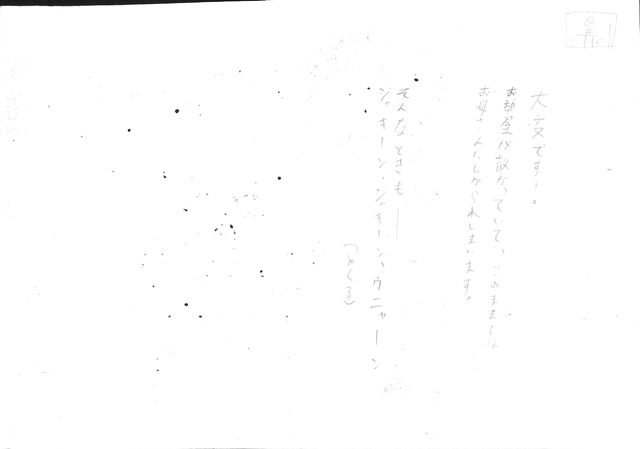 大変です！。
お部屋が散かっていて、このままでは
お母さんにしかられてしまいます。
そんなときも――
ジャキーン・ジャキーン、ウニャーン
（めくる）